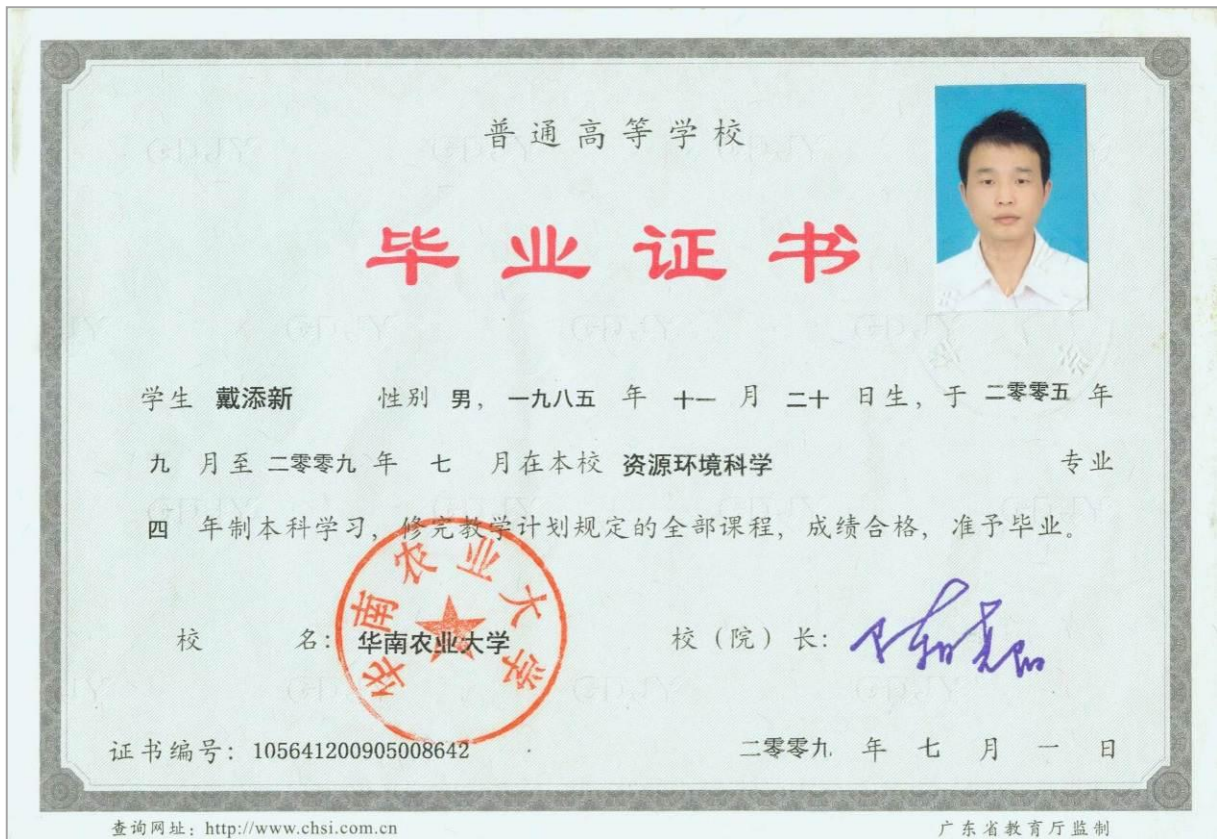 普通高等学校
毕业证书
学生 戴添新 性别 男，一九八五 年 十一 月 二十 日生，于 二零零五 年
九 月至 二零零九 年 七 月在本校 资源环境科学 专业
四 年制本科学习，修完教学计划规定的全部课程，成绩合格，准予毕业。
华南农业大学
校 名：华南农业大学 校（院）长：
证书编号：105641200905008642 二零零九 年 七 月 一 日
查询网址：http://www.chsi.com.cn 广东省教育厅监制